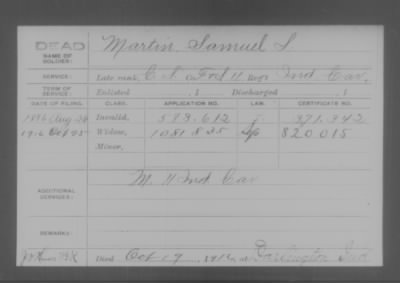 DEAD
NAME OF SOLDIER: Martin Samuel S
SERVICE: Late rank, Co. F & 11 Reg't Ind Cav,
TERM OF SERVICE: Enlisted , 1 Discharged , 1
DATE OF FILING. CLASS. APPLICATION NO. LAW. CERTIFICATE NO.
1886 Aug 26 Invalid, 579.612 371.342
1916 Oct 25 Widow, 1081.835 820015
Minor,
ADDITIONAL SERVICES: M. 11 Ind Cav
REMARKS:
Died Oct 19, 1916, at Darlington Ind